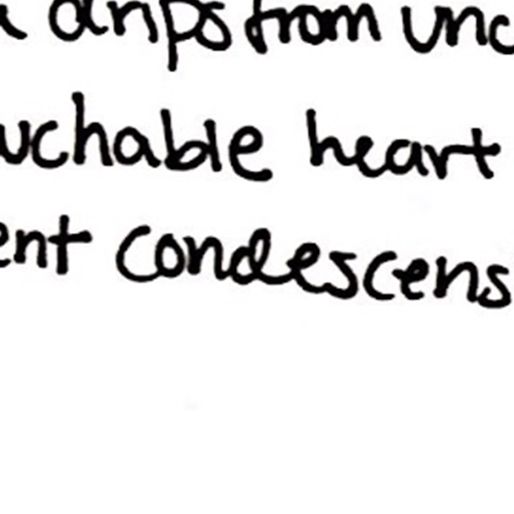 drips from unc
uchable heart
ent condescens